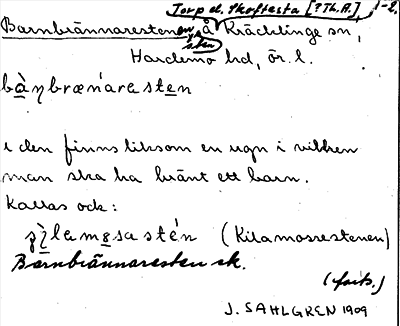 Torp u. Skoftesta [? Th. A.], 1-2.
Barnbrännarestenen, å Kräcklinge sn,
sten
Hardemo hd, ör. l.
bà̱ŋbrænaresten
i den finns liksom en ugn i vilken
man ska ha bränt ett barn.
Kallas ock:
(Kilamossestenen)
Barnbrännaresten ek.
(forts.)
J. SAHLGREN 1909